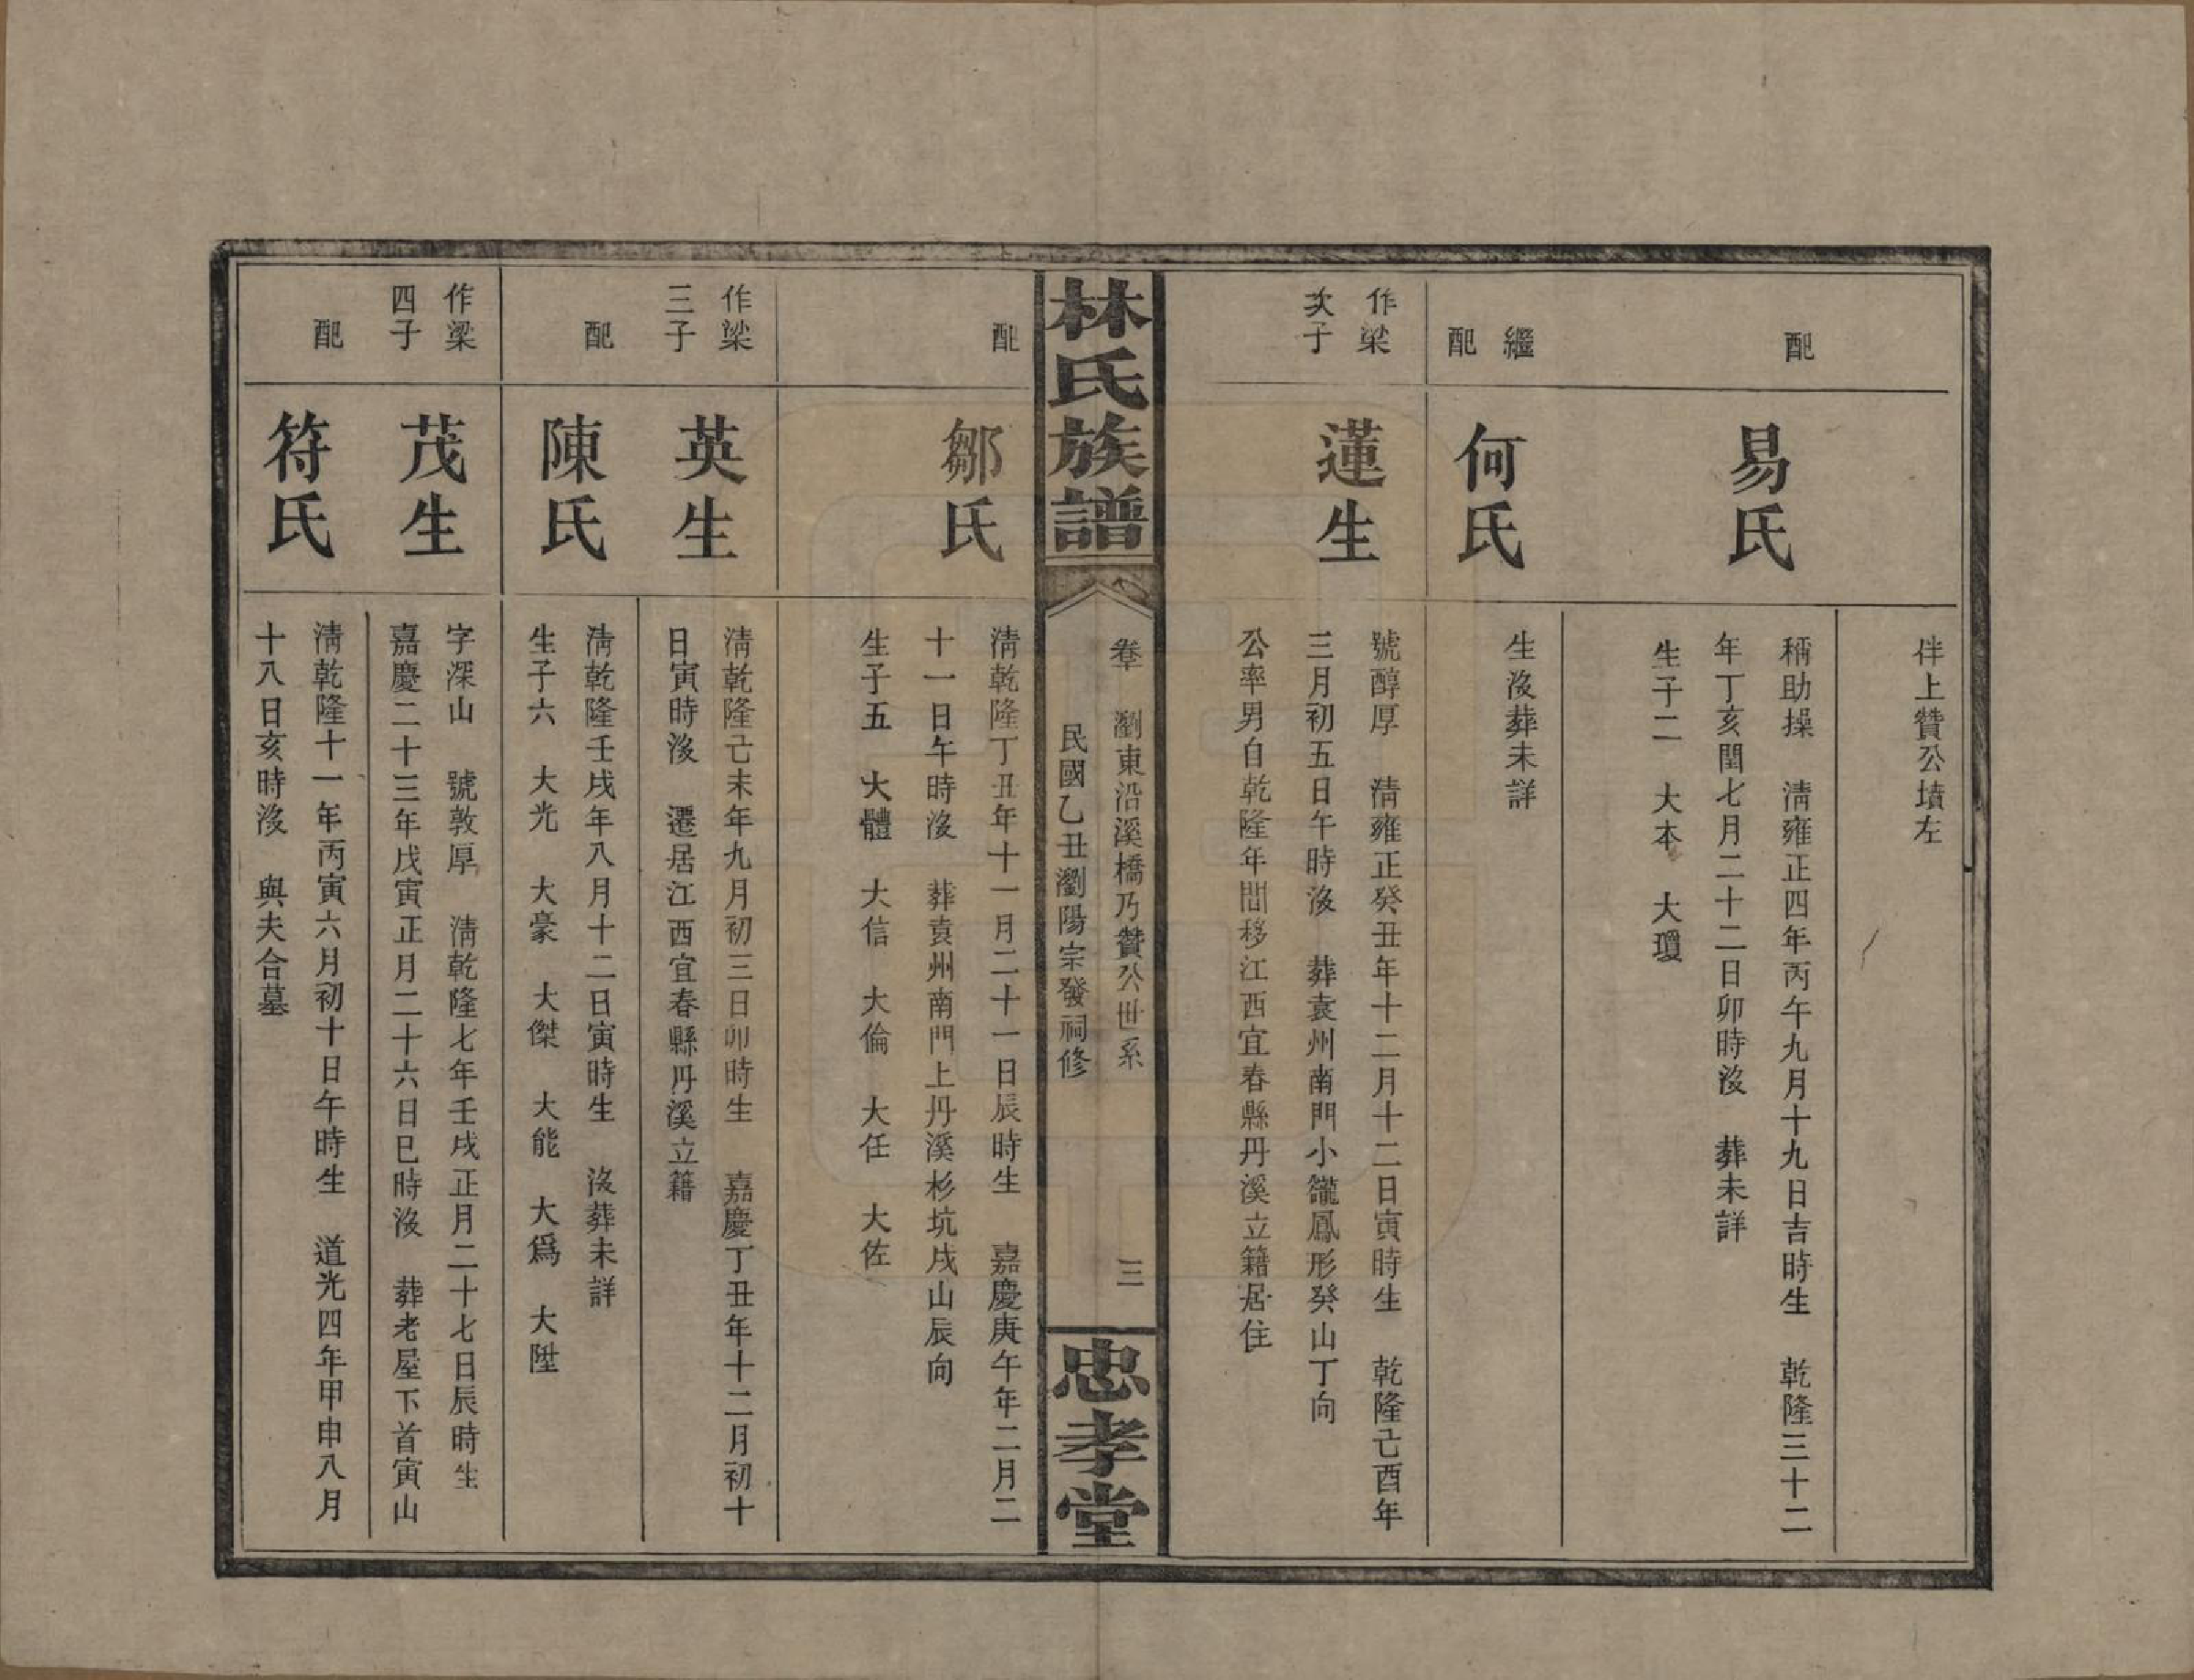 伴上贊公墳左
配
易氏
稱助操　淸雍正四年丙午九月十九日吉時生　乾隆三十二
年丁亥閏七月二十二日卯時沒　葬未詳
生子二　大本　大瓊
繼
配
何氏
生沒葬未詳
作梁
次子
蓮生
號醇厚　淸雍正癸丑年十二月十二日寅時生　乾隆己酉年
三月初五日午時沒　葬袁州南門小龓鳳形癸山丁向
公率男自乾隆年間移江西宜春縣丹溪立籍居住
林氏族譜
卷　瀏東沿溪橋乃贊公世系　三
民國乙丑瀏陽宗發祠修
忠孝堂
配
鄒氏
淸乾隆丁丑年十一月二十一日辰時生　嘉慶庚午年二月二
十一日午時沒　葬袁州南門上丹溪杉坑戌山辰向
生子五　大體　大信　大倫　大任　大佐
作梁
三子
英生
淸乾隆己未年九月初三日卯時生　嘉慶丁丑年十二月初十
日寅時沒　遷居江西宜春縣丹溪立籍
配
陳氏
淸乾隆壬戌年八月十二日寅時生　沒葬未詳
生子六　大光　大豪　大傑　大能　大爲　大陞
作梁
四子
茂生
字深山　號敦厚　淸乾隆七年壬戌正月二十七日辰時生
嘉慶二十三年戊寅正月二十六日巳時沒　葬老屋下首寅山
配
符氏
淸乾隆十一年丙寅六月初十日午時生　道光四年甲申八月
十八日亥時沒　與夫合墓